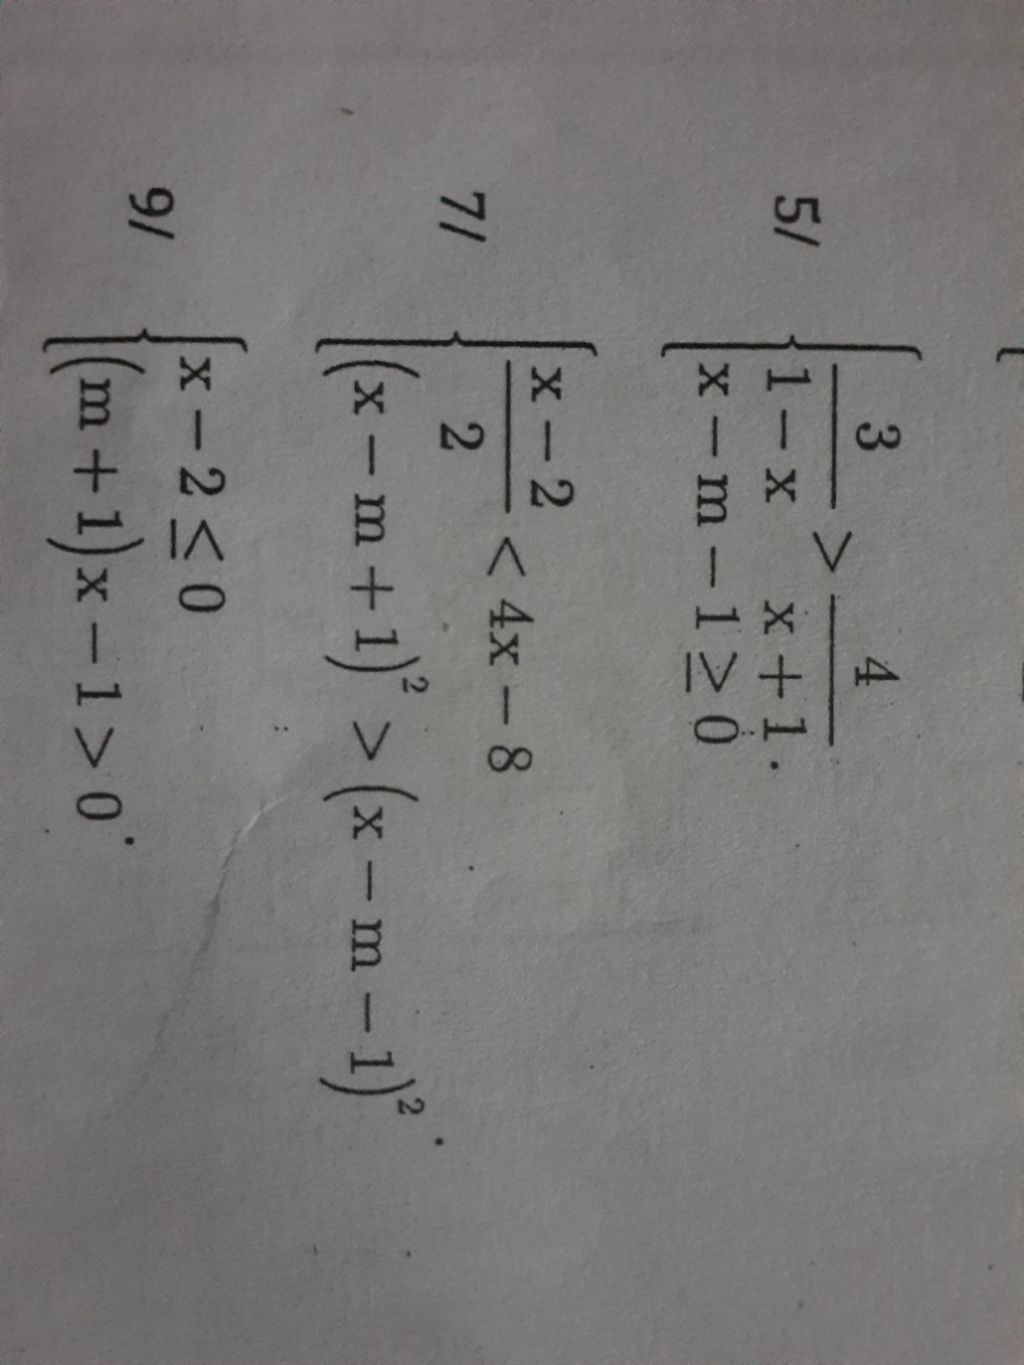 5/ { 3/(1 − x) > 4/(x + 1)
x − m − 1 ≥ 0 .
7/ { (x − 2)/2 < 4x − 8
(x − m + 1)² > (x − m − 1)² .
9/ { x − 2 ≤ 0
(m + 1)x − 1 > 0 .